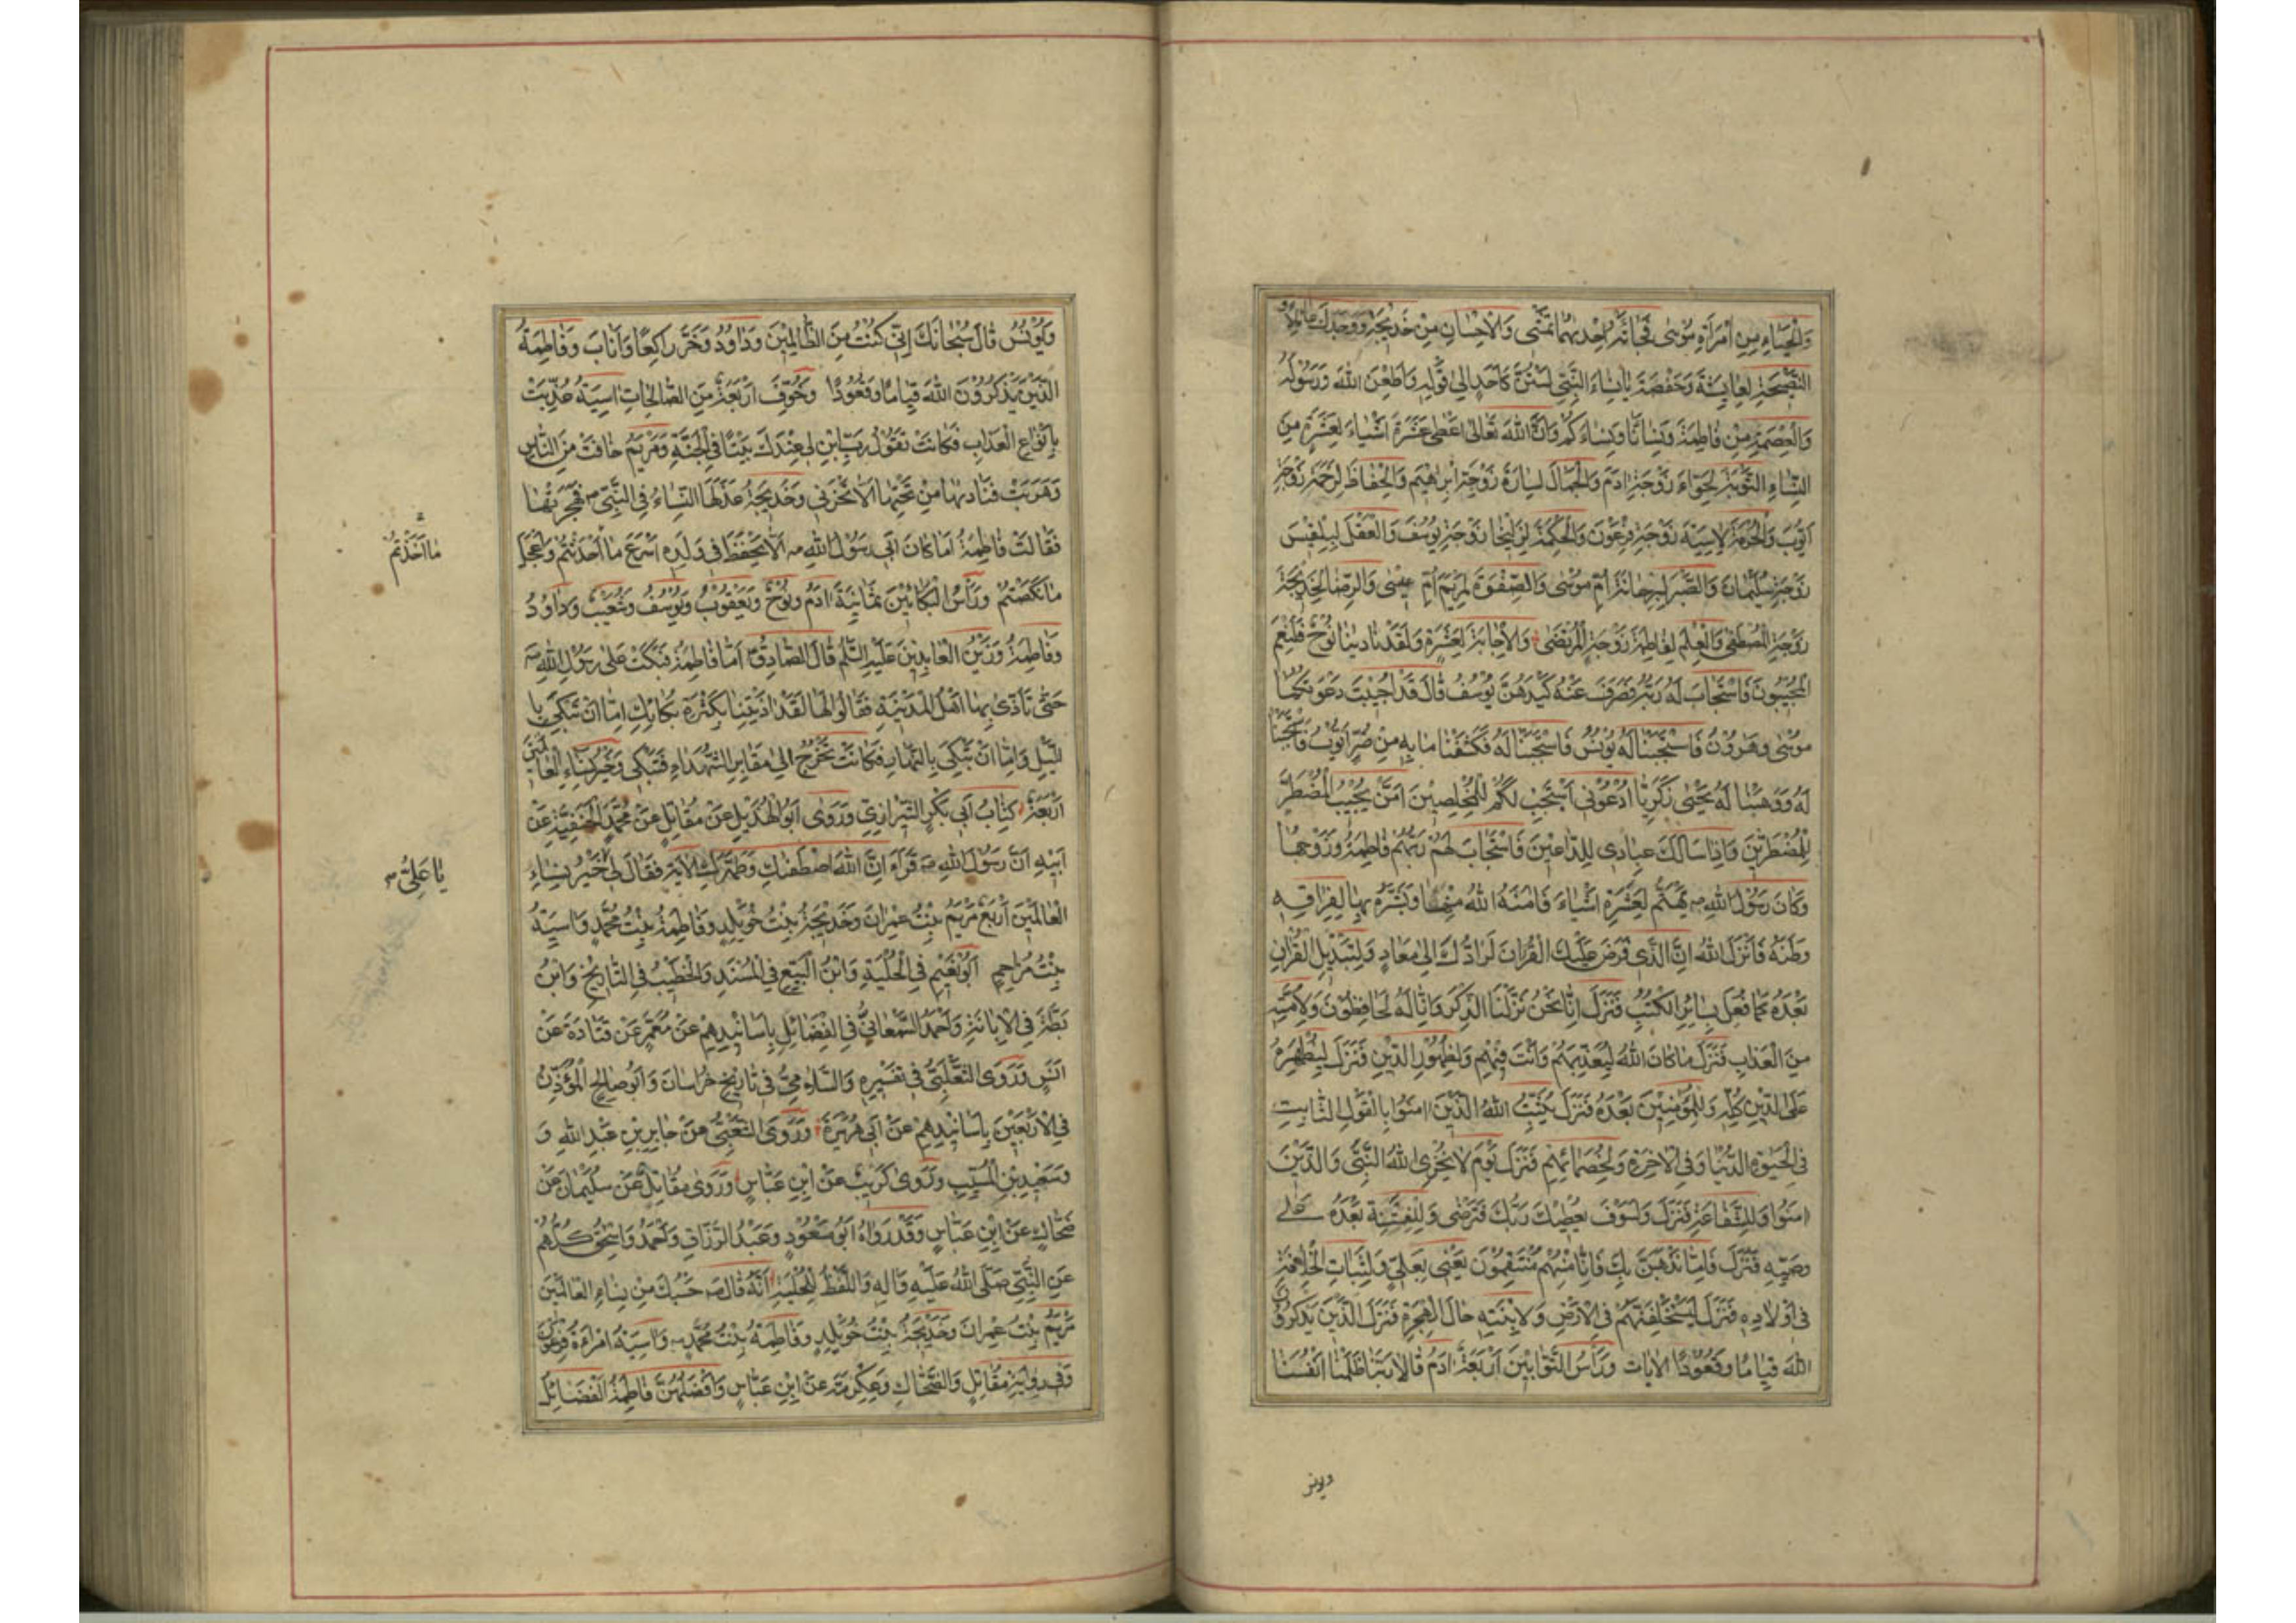 وَالْحَيَاءِ مِنِ امْرَأَةِ مُوسٰى فَجَائَتْهُ اِحْدٰيهُمَا تَمْشِى وَالْاِحْسَانِ مِنْ خَدِيجَةَ وَوَجَدَكَ عَائِلًا وَ
النَّصِيحَةِ لِعَايِشَةَ وَحَفْصَةَ يَا نِسَاءَ النَّبِىِّ لَسْتُنَّ كَاَحَدٍ اِلٰى قَوْلِهِ وَاَطِعْنَ اللّٰهَ وَرَسُولَهُ
وَالْعِصْمَةِ مِنْ فَاطِمَةَ وَنِسَائَنَا وَنِسَاءَكُمْ وَاَنَّ اللّٰهَ تَعَالٰى اَعْطٰى عَشَرَةَ اَشْيَاءَ لِعَشَرَةٍ مِنَ
النِّسَاءِ التَّوْبَةَ لِحَوَّاءَ زَوْجَةِ اٰدَمَ وَالْجَمَالَ لِسَارَةَ زَوْجَةِ اِبْرٰهِيمَ وَالْحِفَاظَ لِرَحْمَةَ زَوْجَةِ
اَيُّوبَ وَالْحُرْمَةَ لِاٰسِيَةَ زَوْجَةِ فِرْعَوْنَ وَالْحِكْمَةَ لِزَلِيخَا زَوْجَةِ يُوسُفَ وَالْعَقْلَ لِبِلْقِيسَ
زَوْجَةِ سُلَيْمَانَ وَالصَّبْرَ لِبَرْحَانَةَ اُمِّ مُوسٰى وَالصِّفْوَةَ لِمَرْيَمَ اُمِّ عِيسٰى وَالرِّضَا لِخَدِيجَةَ
زَوْجَةِ الْمُصْطَفٰى وَالْعِلْمَ لِفَاطِمَةَ زَوْجَةِ الْمُرْتَضٰى وَالْاِجَابَةَ لِعَشَرَةٍ وَلَقَدْ نَادٰينَا نُوحٌ فَلَنِعْمَ
الْمُجِيبُونَ فَاسْتَجَابَ لَهُ رَبُّهُ فَصَرَفَ عَنْهُ كَيْدَهُنَّ يُوسُفُ قَالَ قَدْ اُجِيبَتْ دَعْوَتُكُمَا
مُوسٰى وَهٰرُونَ فَاسْتَجَبْنَا لَهُ يُونُسُ فَاسْتَجَبْنَا لَهُ فَكَشَفْنَا مَا بِهِ مِنْ ضُرٍّ اَيُّوبُ فَاسْتَجَبْنَا
لَهُ وَوَهَبْنَا لَهُ يَحْيٰى زَكَرِيَّا اُدْعُونِى اَسْتَجِبْ لَكُمْ لِلْمُخْلِصِينَ اَمَّنْ يُجِيبُ الْمُضْطَرَّ
لِلْمُضْطَرِّينَ وَاِذَا سَاَلَكَ عِبَادِى لِلدَّاعِينَ فَاسْتَجَابَ لَهُمْ رَبُّهُمْ فَاطِمَةُ وَزَوْجُهَا
وَكَانَ رَسُولُ اللّٰهِ ص يَهْتَمُّ لِعَشَرَةِ اَشْيَاءَ فَاٰمَنَهُ اللّٰهُ مِنْهَا وَبَشَّرَهُ بِهَا لِفِرَاقِهِ
وَطَنَهُ فَاَنْزَلَ اللّٰهُ اِنَّ الَّذِى فَرَضَ عَلَيْكَ الْقُرْاٰنَ لَرَادُّكَ اِلٰى مَعَادٍ وَلِتَبْدِيلِ الْقُرْاٰنِ
بَعْدَهُ كَمَا فُعِلَ بِسَائِرِ الْكُتُبِ فَنَزَلَ اِنَّا نَحْنُ نَزَّلْنَا الذِّكْرَ وَاِنَّا لَهُ لَحَافِظُونَ وَلِاُمَّتِهِ
مِنَ الْعَذَابِ فَنَزَلَ مَا كَانَ اللّٰهُ لِيُعَذِّبَهُمْ وَاَنْتَ فِيهِمْ وَلِظُهُورِ الدِّينِ فَنَزَلَ لِيُظْهِرَهُ
عَلَى الدِّينِ كُلِّهِ وَلِلْمُؤْمِنِينَ بَعْدَهُ فَنَزَلَ يُثَبِّتُ اللّٰهُ الَّذِينَ اٰمَنُوا بِالْقَوْلِ الثَّابِتِ
فِى الْحَيٰوةِ الدُّنْيَا وَفِى الْاٰخِرَةِ وَلِخُصَمَائِهِمْ فَنَزَلَ يَوْمَ لَا يُخْزِى اللّٰهُ النَّبِىَّ وَالَّذِينَ
اٰمَنُوا وَلِلشَّفَاعَةِ فَنَزَلَ وَلَسَوْفَ يُعْطِيكَ رَبُّكَ فَتَرْضٰى وَلِلْفِتْنَةِ بَعْدَهُ عَلٰى
وَصِيِّهِ فَنَزَلَ فَاِمَّا نَذْهَبَنَّ بِكَ فَاِنَّا مِنْهُمْ مُنْتَقِمُونَ يَعْنِى بِعَلِىٍّ وَلِثَبَاتِ الْخِلَافَةِ
فِى اَوْلَادِهِ فَنَزَلَ لَيَسْتَخْلِفَنَّهُمْ فِى الْاَرْضِ وَلِابْنَتِهِ حَالَ الْهِجْرَةِ فَنَزَلَ الَّذِينَ يَذْكُرُونَ
اللّٰهَ قِيَامًا وَقُعُودًا الْاٰيَات وَرَأْسُ التَّوَّابِينَ اَرْبَعَةٌ اٰدَمُ قَالَا رَبَّنَا ظَلَمْنَا اَنْفُسَنَا
ويونس
وَيُونُسُ قَالَ سُبْحَانَكَ اِنِّى كُنْتُ مِنَ الظَّالِمِينَ وَدَاوُدُ وَخَرَّ رَاكِعًا وَاَنَابَ وَفَاطِمَةُ
الَّذِينَ يَذْكُرُونَ اللّٰهَ قِيَامًا وَقُعُودًا وَخُوِّفَ اَرْبَعَةٌ مِنَ الصَّالِحَاتِ اٰسِيَةُ عُذِّبَتْ
بِاَنْوَاعِ الْعَذَابِ فَكَانَتْ تَقُولُ رَبِّ ابْنِ لِى عِنْدَكَ بَيْتًا فِى الْجَنَّةِ وَمَرْيَمُ خَافَتْ مِنَ النَّاسِ
وَهَرَبَتْ فَنَادٰيهَا مِنْ تَحْتِهَا اَلَّا تَحْزَنِى وَخَدِيجَةُ عَذَلَهَا النِّسَاءُ فِى النَّبِىِّ ص فَهَجَرْنَهَا
فَقَالَتْ فَاطِمَةُ اَمَا كَانَ اَبِى رَسُولُ اللّٰهِ ص اَلَا يُحْفَظُ فِى وَلَدِهِ اَسْرَعَ مَا اَخَذْتُمْ وَاَعْجَلَ
مَا اَخَذْتُمْ
مَا نَكَصْتُمْ وَرَأْسُ الْبَكَّائِينَ ثَمَانِيَةٌ اٰدَمُ وَنُوحٌ وَيَعْقُوبُ وَيُوسُفُ وَشُعَيْبٌ وَدَاوُدُ
وَفَاطِمَةُ وَزَيْنُ الْعَابِدِينَ عَلَيْهِ السَّلَامُ قَالَ الصَّادِقُ اَمَّا فَاطِمَةُ فَبَكَتْ عَلٰى رَسُولِ اللّٰهِ ص
حَتّٰى تَاَذّٰى بِهَا اَهْلُ الْمَدِينَةِ فَقَالُوا لَهَا لَقَدْ اٰذَيْتِنَا بِكَثْرَةِ بُكَائِكِ اِمَّا اَنْ تَبْكِى بِا
للَّيْلِ وَاِمَّا اَنْ تَبْكِى بِالنَّهَارِ فَكَانَتْ تَخْرُجُ اِلٰى مَقَابِرِ الشُّهَدَاءِ فَتَبْكِى وَخَيْرُ نِسَاءِ الْعَالَمِينَ
اَرْبَعَةٌ كِتَابُ اَبِى بَكْرٍ الشِّيرَازِىِّ وَرَوٰى اَبُو الْهُذَيْلِ عَنْ مُقَاتِلٍ عَنْ مُحَمَّدِ الْحَنَفِيَّةِ عَنْ
اَبِيهِ اَنَّ رَسُولَ اللّٰهِ ص قَرَاَ اِنَّ اللّٰهَ اصْطَفٰيكِ وَطَهَّرَكِ الْاٰيَةَ فَقَالَ لِى خَيْرُ نِسَاءِ
يَا عَلِىُّ
الْعَالَمِينَ اَرْبَعٌ مَرْيَمُ بِنْتُ عِمْرَانَ وَخَدِيجَةُ بِنْتُ خُوَيْلِدٍ وَفَاطِمَةُ بِنْتُ مُحَمَّدٍ وَاٰسِيَةُ
بِنْتُ مُزَاحِمٍ اَبُو نُعَيْمٍ فِى الْحُلْيَةِ وَابْنُ الْبَيِّعِ فِى الْمُسْنَدِ وَالْخَطِيبُ فِى التَّارِيخِ وَابْنُ
بَطَّةَ فِى الْاِبَانَةِ وَاَحْمَدُ السَّمْعَانِىُّ فِى الْفَضَائِلِ بِاَسَانِيدِهِمْ عَنْ مُعَمَّرٍ عَنْ قَتَادَةَ عَنْ
اَنَسٍ وَرَوَى الثَّعْلَبِىُّ فِى تَفْسِيرِهِ وَالسَّلَامِىُّ فِى تَارِيخِ خُرَاسَانَ وَاَبُو صَالِحٍ الْمُؤَذِّنُ
فِى الْاَرْبَعِينَ بِاَسَانِيدِهِمْ عَنْ اَبِى هُرَيْرَةَ وَرَوَى الشَّعْبِىُّ عَنْ جَابِرِ بْنِ عَبْدِ اللّٰهِ وَ
وَسَعِيدِ بْنِ الْمُسَيِّبِ وَرَوٰى كُرَيْبٌ عَنِ ابْنِ عَبَّاسٍ وَرَوٰى مُقَاتِلٌ عَنْ سُلَيْمَانَ عَنِ
ضَحَّاكِ عَنِ ابْنِ عَبَّاسٍ وَقَدْ رَوَاهُ اَبُو مَسْعُودٍ وَعَبْدُ الرَّزَّاقِ وَاَحْمَدُ وَاِسْحٰقُ كُلُّهُمْ
عَنِ النَّبِىِّ صَلَّى اللّٰهُ عَلَيْهِ وَاٰلِهِ وَاللَّفْظُ لِلْحُلْيَةِ اَنَّهُ قَالَ ص حَسْبُكَ مِنْ نِسَاءِ الْعَالَمِينَ
مَرْيَمُ بِنْتُ عِمْرَانَ وَخَدِيجَةُ بِنْتُ خُوَيْلِدٍ وَفَاطِمَةُ بِنْتُ مُحَمَّدٍ ص وَاٰسِيَةُ امْرَاَةُ فِرْعَوْنَ
وَفِى رِوَايَةِ مُقَاتِلٍ وَالضَّحَّاكِ وَعِكْرِمَةَ عَنِ ابْنِ عَبَّاسٍ وَاَفْضَلُهُنَّ فَاطِمَةُ الْفَضَائِلُ